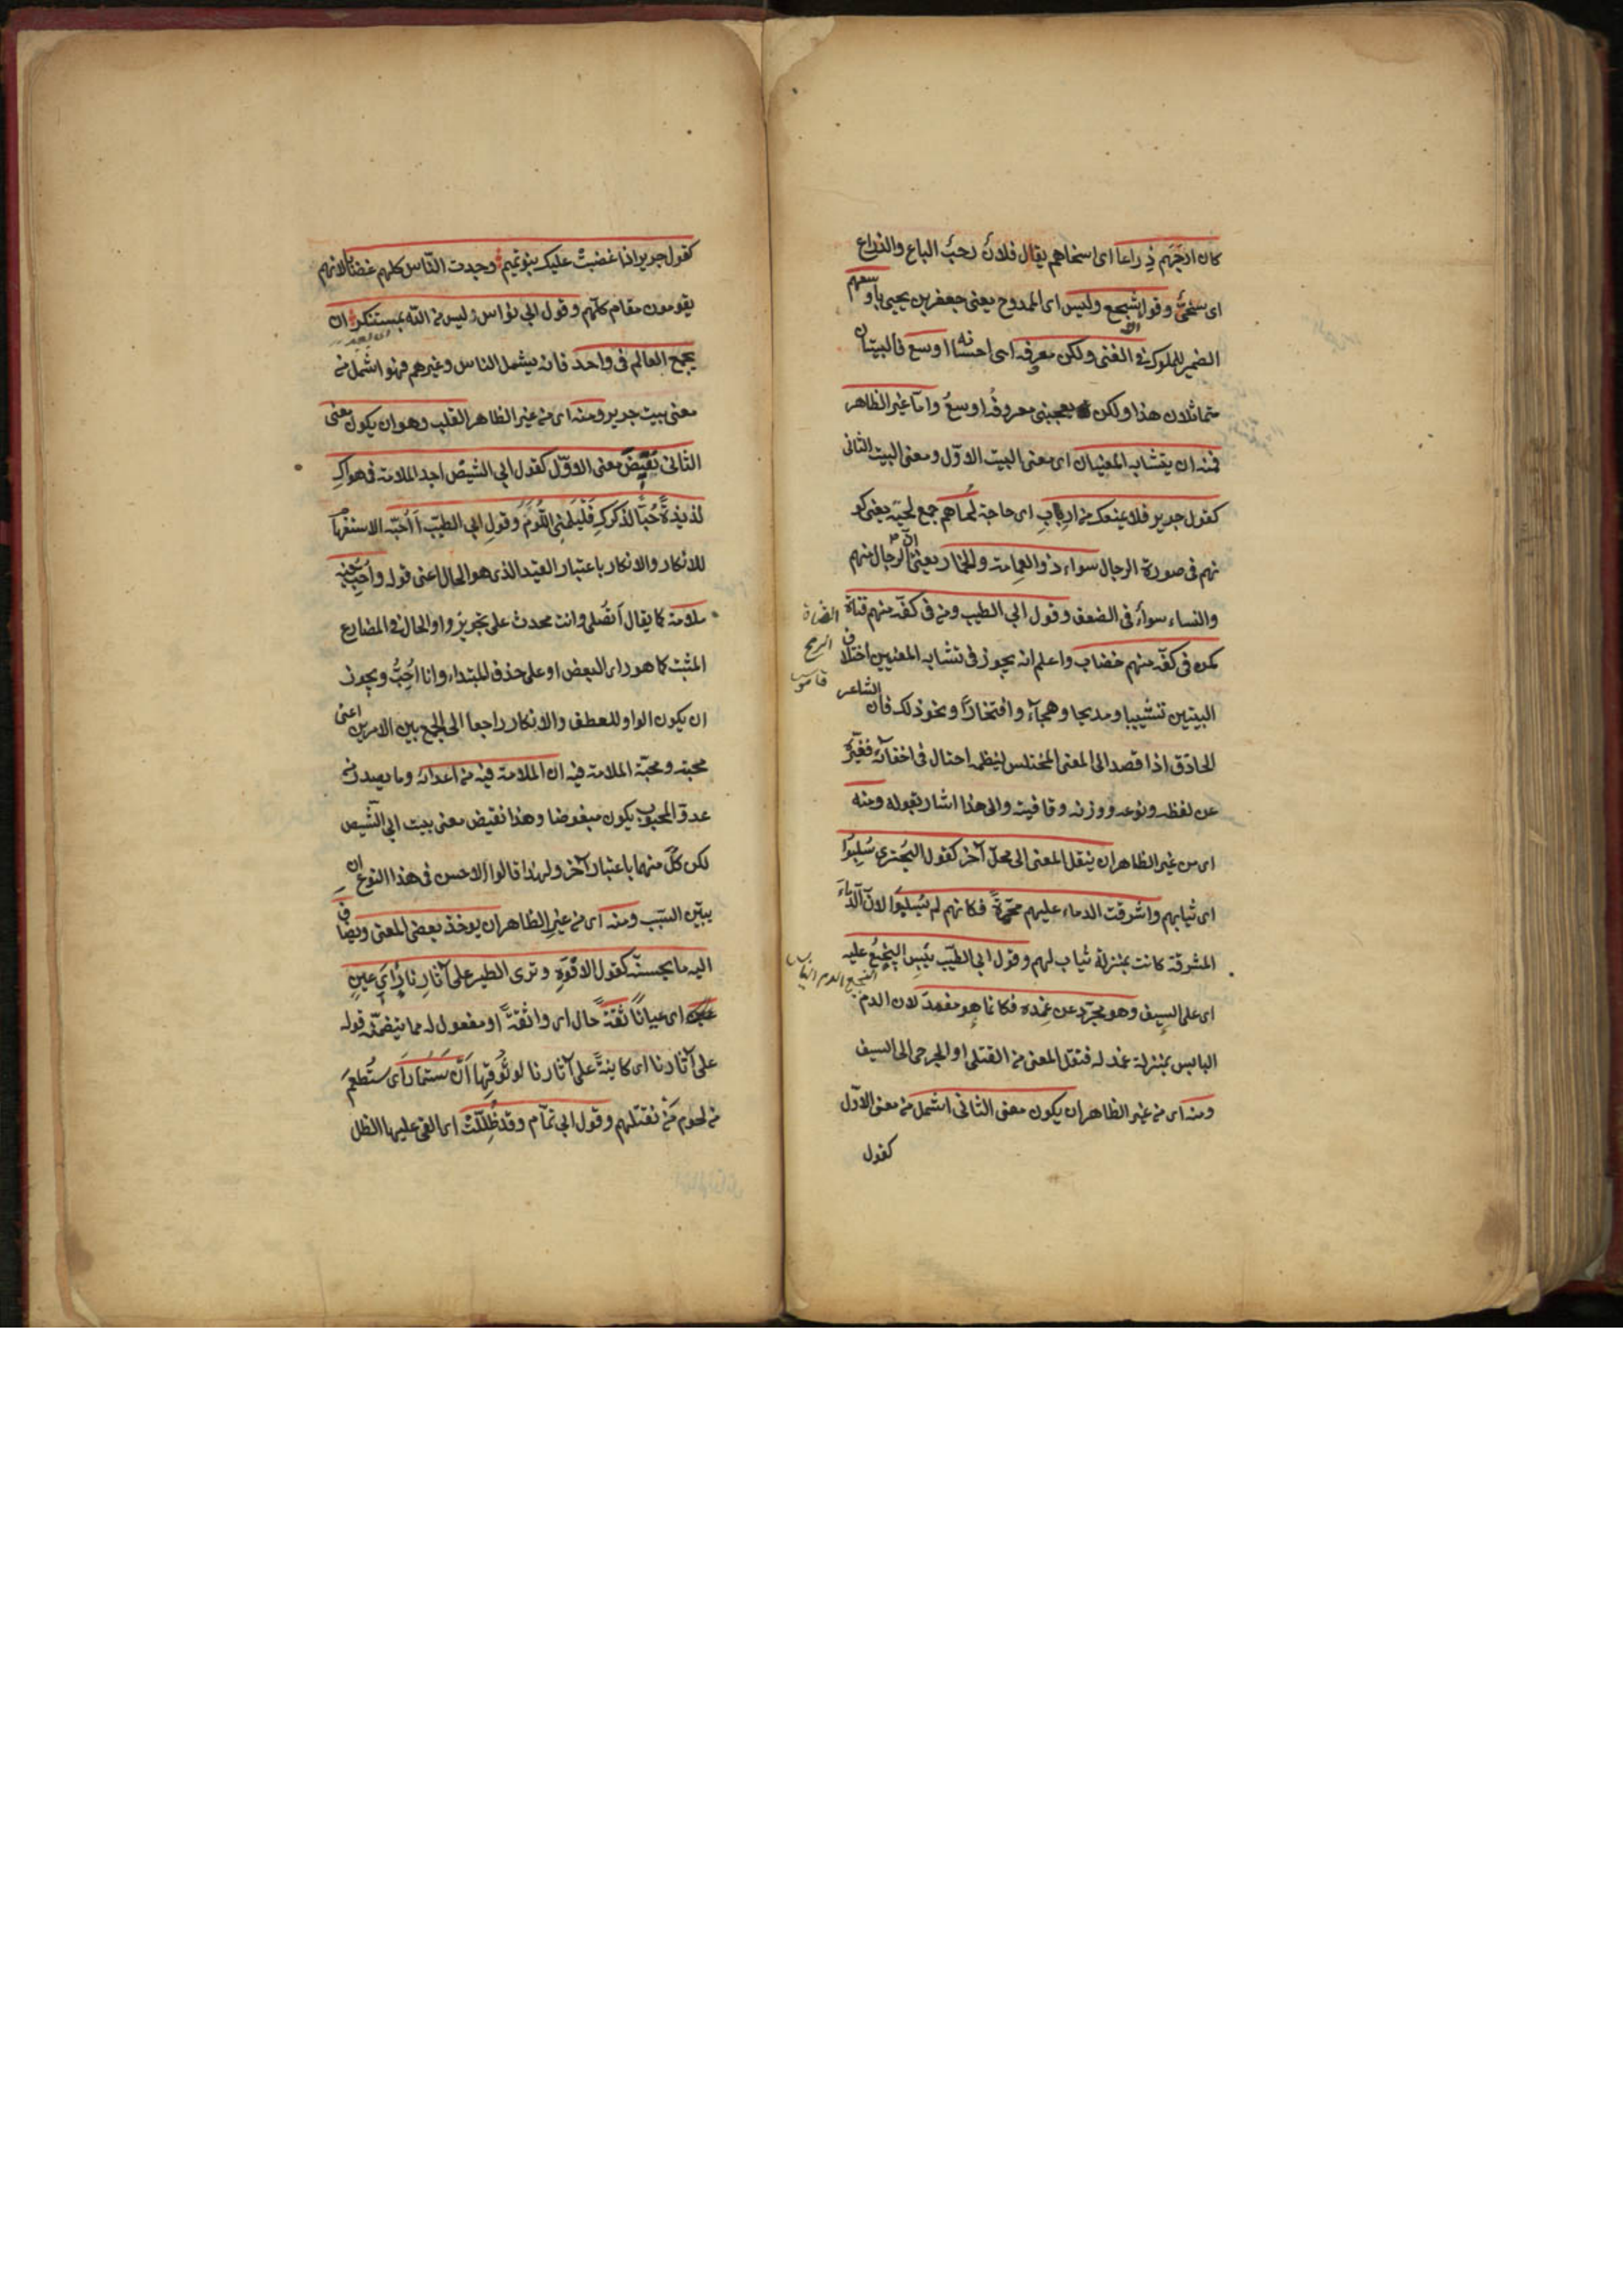 كان ارحبهم ذراعا اى اسخاهم يقال فلان رحب الباع والذراع
اى سخىّ وقول اشجع وليس اى الممدوح يعنى جعفر بن يحيى باوسعهم
الضمير للملوك فى الغنى ولكن معروفه اى احسانه اوسع فالبيتان
متماثلان هذا ولكن يعجبنى معروفه اوسع واما غير الظاهر
فمنه ان يتشابه المعنيان اى معنى البيت الاوّل ومعنى البيت الثانى
كقول جرير فلا يمنعك من ارب اى حاجة لحاهم جمع لحية يعنى كو
نهم فى صورة الرجال سواء ذو العمامة والخمار يعنى ان الرجال منهم
والنساء سواء فى الضعف وقول ابي الطيب ومن فى كفّه منهم قناة
كمن فى كفّه منهم خضاب واعلم انه يجوز فى تشابه المعنيين اختلاف
البيتين تشبيبا ومديحا وهجاء وافتخارًا ونحو ذلك فان الشاعر
الحاذق اذا قصد الى المعنى المختلس لينظمه احتال فى اخفائه فغيّره
عن لفظه ونوعه ووزنه وقافيته والى هذا اشار بقوله ومنه
اى من غير الظاهر ان ينقل المعنى الى محلّ آخر كقول البُحترى سُلِبُوا
اى ثيابهم واشرقت الدماء عليهم محمّرةً فكانهم لم يُسلبُوا لانّ الدماء
المشرقة كانت بمنزلة ثياب لهم وقول ابي الطيّب يَبِس النجيعُ عليه
اى على السيف وهو مجرّد عن غمده فكانما هو مغمد لان الدم
اليابس بمنزلة غمد له فنقل المعنى من القتلى او الجرحى الى السيف
ومنه اى من غير الظاهر ان يكون معنى الثانى اشمل من معنى الاوّل
كقول
القناة
الرمح
قاموس
النجيع الدم
كقول جرير اذا غضبتْ عليك بنو تميم وجدت النّاس كلهم غضابا لانهم
يقومون مقام كلّهم وقول ابي نواس ليس من الله بمستنكر ان
يجمع العالم فى واحد فانه يشمل الناس وغيرهم فهو اشمل من
معنى بيت جرير ومنه اى من غير الظاهر القلب وهو ان يكون معنى
الثانى نقيض معنى الاوّل كقول ابي الشيص اجد الملامة فى هواكِ
لذيذةً حُبّا لذكركِ فَلْيَلُمْنِى اللُّوّمُ وقول ابي الطيّب أأُحبّه الاستفهام
للانكار والانكار باعتبار القيد الذى هو الحال اعنى قوله واُحبّ فيه
ملامة كما يقال أتُصلى وانت محدث على تجويز واو الحال فى المضارع
المثبت كما هو راى البعض او على حذف المبتداء وانا اُحِبُّ ويجوز
ان يكون الواو للعطف والانكار راجعا الى الجمع بين الامرين اعنى
محبته ومحبّة الملامة فيه ان الملامة فيه من اعدائه وما يصدر من
عدوّ المحبوب يكون مبغوضا وهذا نقيض معنى بيت ابي الشّيص
لكن كلّ منهما باعتبار آخر ولهذا قالوا الاحسن فى هذا النوع ان
يبيّن السّبب ومنه اى من غير الظاهر ان يوخذ بعض المعنى ويضاف
اليه ما يحسنّه كقول الافوّه وترى الطير على آثارِنا رأى عينٍ
اى عيانًا ثقةً حال اى واثقةً او مفعول له مما يتضمّنه قوله
على آثارنا اى كاينةً على آثارنا لوثوقها اَنْ ستُمار اى ستُطعم
من لحوم مَنْ نقتلهم وقول ابي تمّام وقد ظُلِّلَتْ اى القى عليها الظل